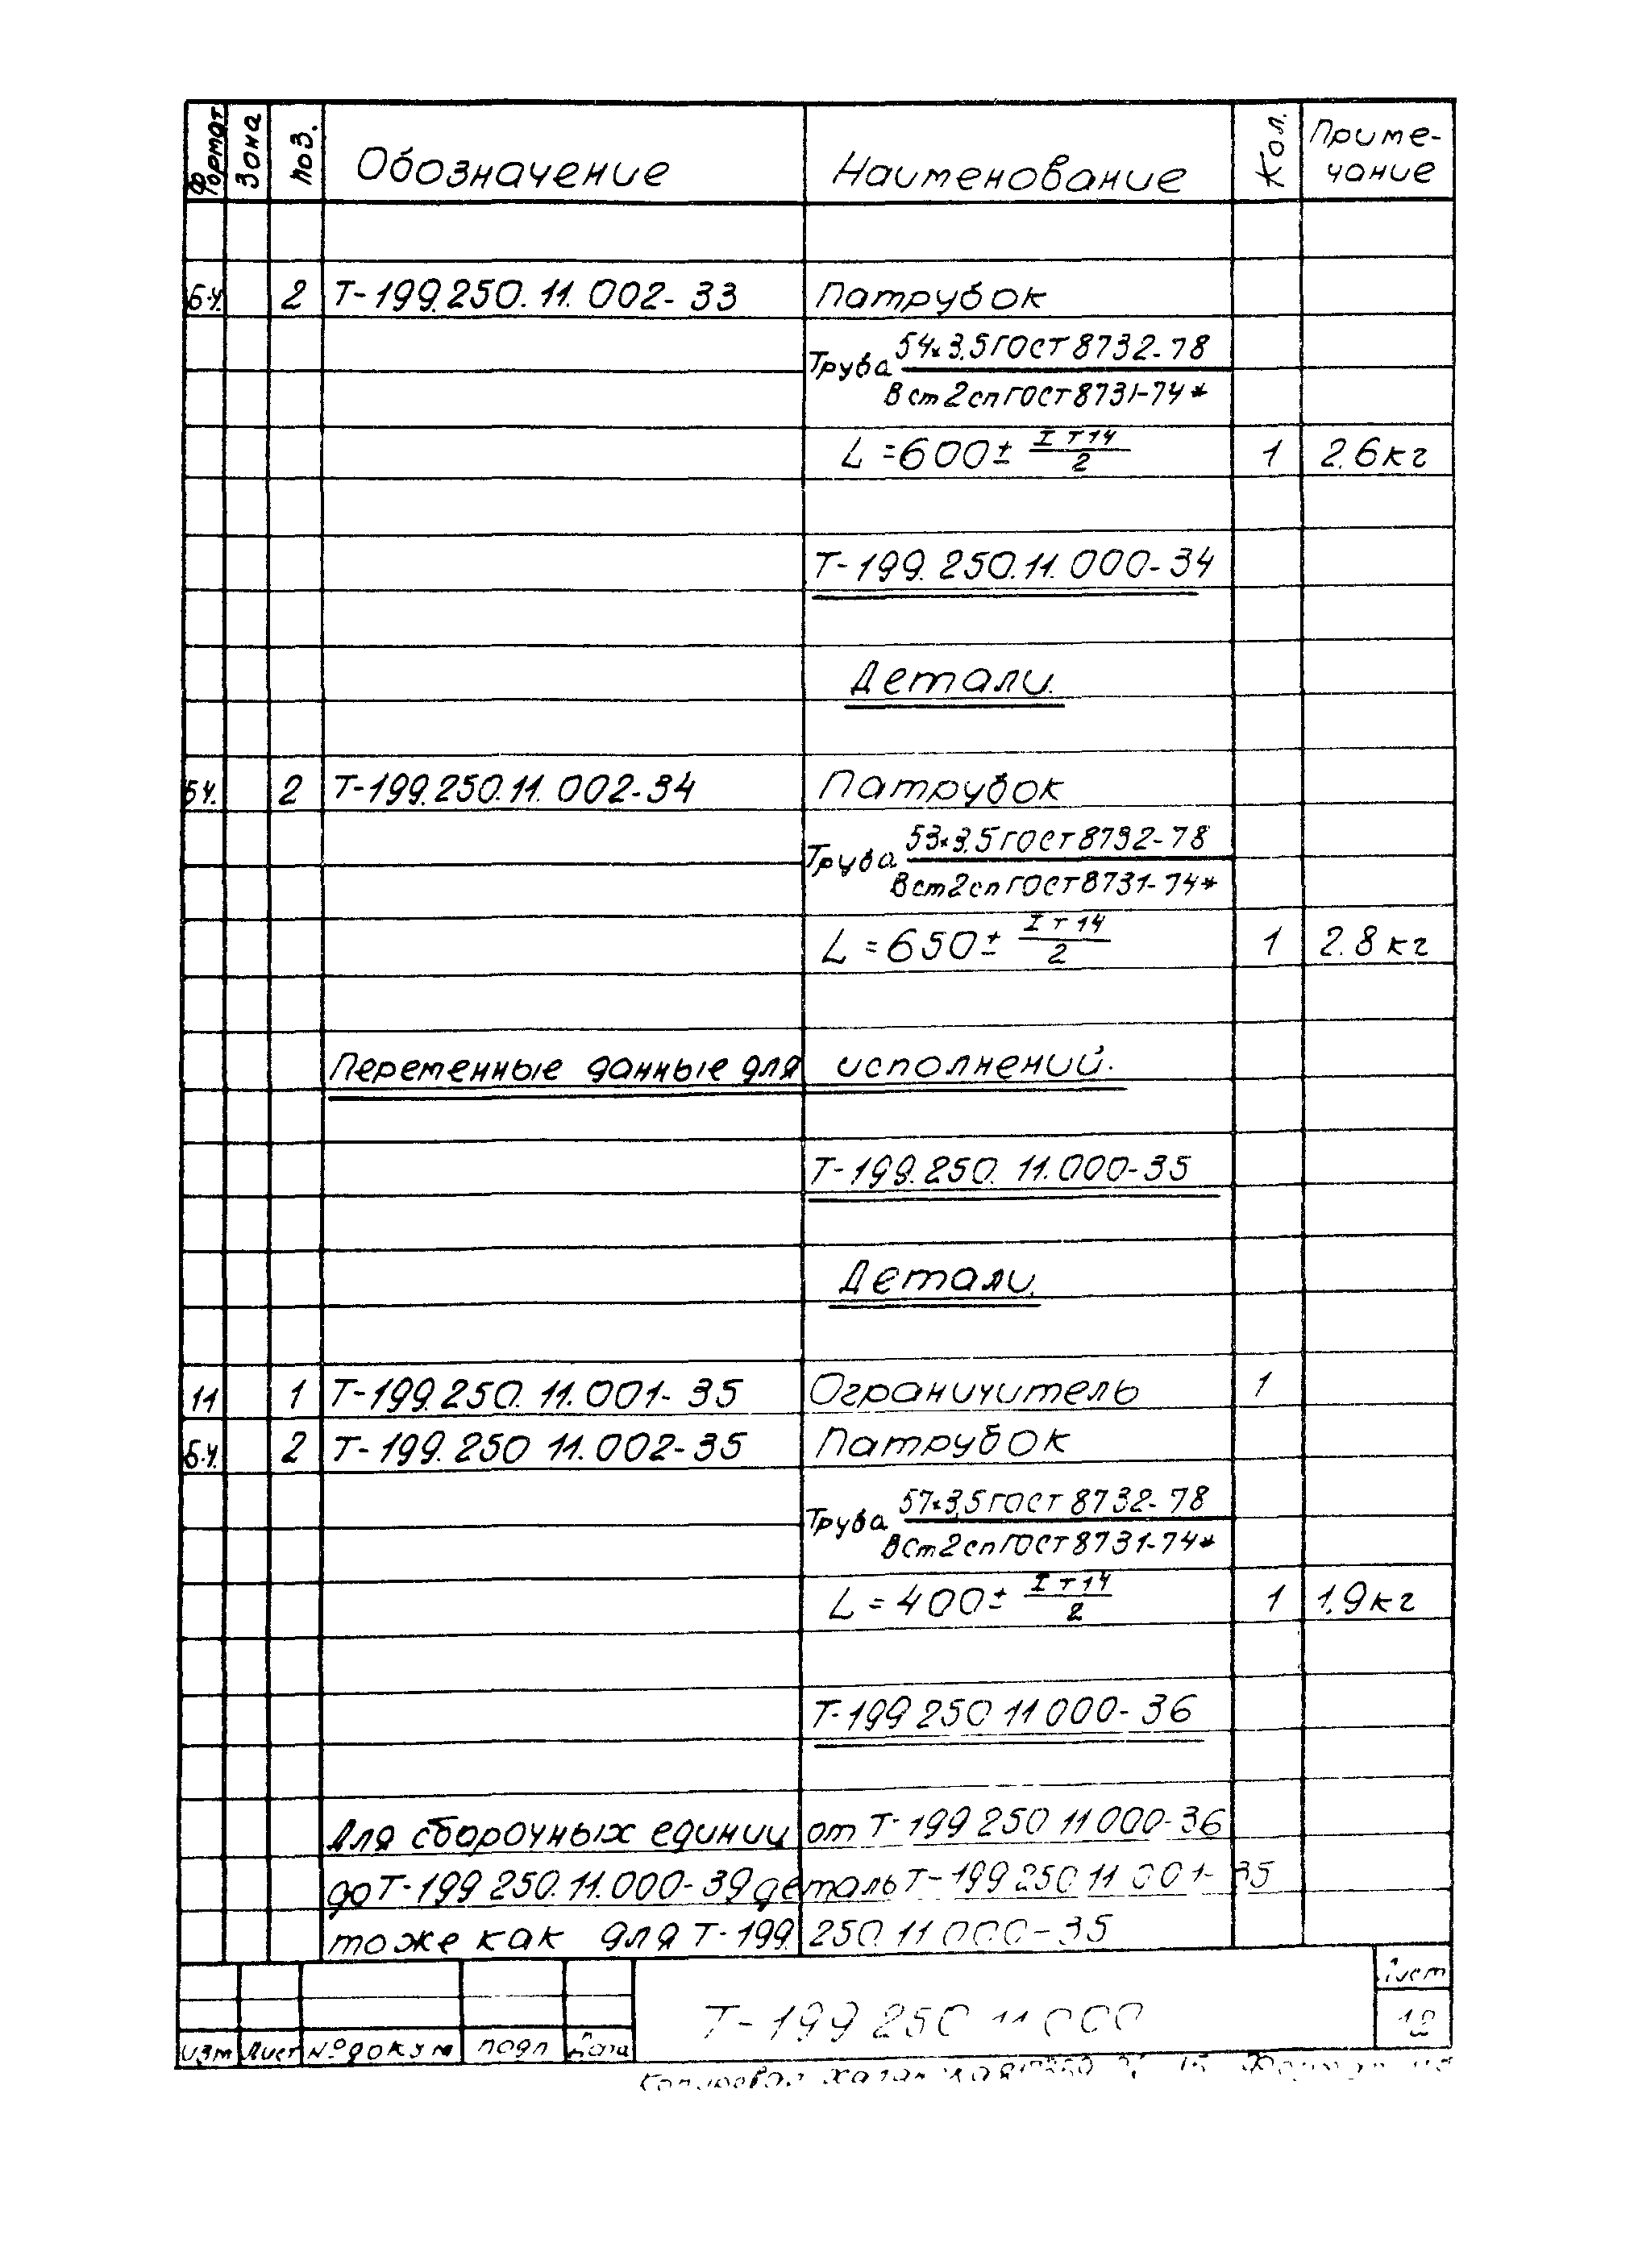 Формат Зона Поз. Обозначение Наименование Кол. Приме-
чание
Б.ч. 2 Т-199.250.11.002-33 Патрубок
Труба 54×3.5 ГОСТ 8732-78
В ст2сп ГОСТ 8731-74*
L=600± IT14/2 1 2.6кг
Т-199.250.11.000-34
Детали.
БЧ. 2 Т-199.250.11.002-34 Патрубок
Труба 53×3.5 ГОСТ 8732-78
В ст2сп ГОСТ 8731-74*
L=650± IT14/2 1 2.8кг
Переменные данные для исполнений.
Т-199.250.11.000-35
Детали.
11 1 Т-199.250.11.001-35 Ограничитель 1
Б.ч. 2 Т-199.250 11.002-35 Патрубок
Труба 57×3,5 ГОСТ 8732-78
В Ст2сп ГОСТ 8731-74*
L=400± IT14/2 1 1.9кг
Т-199 250 11 000-36
Для сборочных единиц от Т-199 250 11 000-36
до Т-199 250.11.000-39 деталь Т-199 250 11 001-35
тоже как для Т-199. 250.11 000-35
Т-199 250 11 000
Лист
изм Лист № докум подп Дата
Копировал Формат